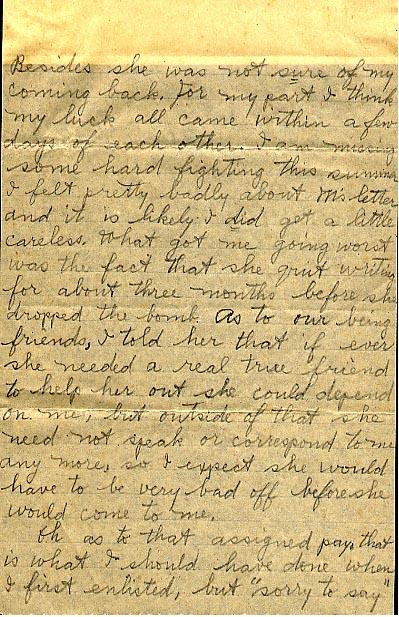 Besides she was not sure of my
coming back. For my part I think
my luck all came within a few
days of each other. I am missing
some hard fighting this summer
I felt pretty badly about M's letter
and it is likely I did get a little
careless. What got me going worst
was the fact that she quit writing
for about three months before she
dropped the bomb. As to our being
friends, I told her that if ever
she needed a real true friend
to help her out she could depend
on me, but outside of that she
need not speak or correspond to me
any more, so I expect she would
have to be very bad off before she
would come to me.
Oh as to that assigned pay, that
is what I should have done when
I first enlisted, but "sorry to say"